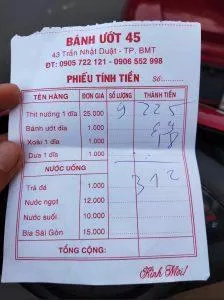 BÁNH ƯỚT 45
43 Trần Nhật Duật - TP. BMT
ĐT: 0905 722 121 - 0906 552 998
PHIẾU TÍNH TIỀN Số:
TÊN HÀNG ĐƠN GIÁ SỐ LƯỢNG THÀNH TIỀN
Thịt nướng 1 dĩa 25.000 9 225
Bánh ướt dĩa 1.000
Xoài 1 dĩa 1.000
Dưa 1 dĩa 1.000
NƯỚC UỐNG 312
Trà đá 1.000
Nước ngọt 12.000
Nước suối 10.000
Bia Sài Gòn 15.000
TỔNG CỘNG:
Kính Mời!